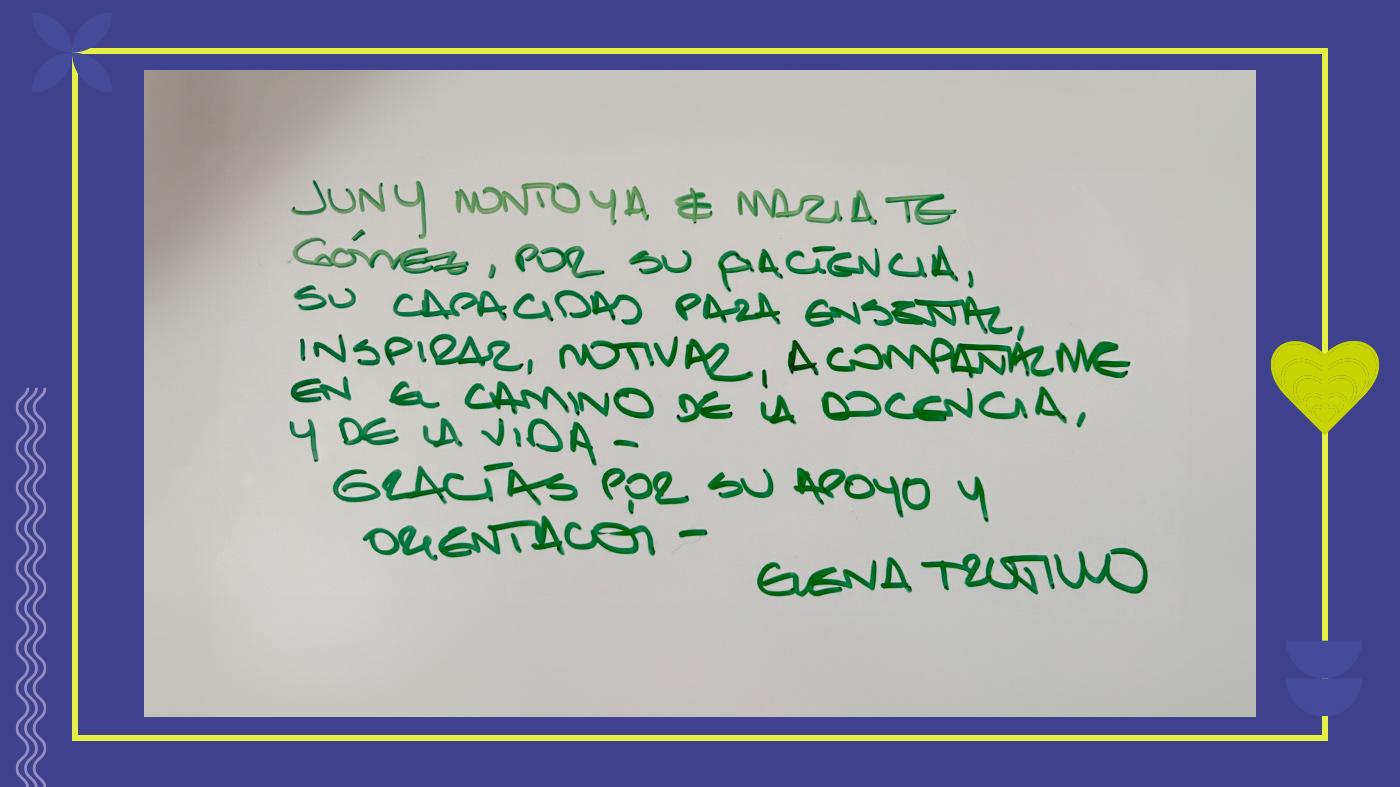 JUNY MONTOYA & MARIA TE
GÓMEZ, POR SU PACIENCIA,
SU CAPACIDAD PARA ENSEÑAR,
INSPIRAR, MOTIVAR, ACOMPAÑARME
EN EL CAMINO DE LA DOCENCIA,
Y DE LA VIDA -
GRACIAS POR SU APOYO Y
ORIENTACON -
ELENA TRUJILLO